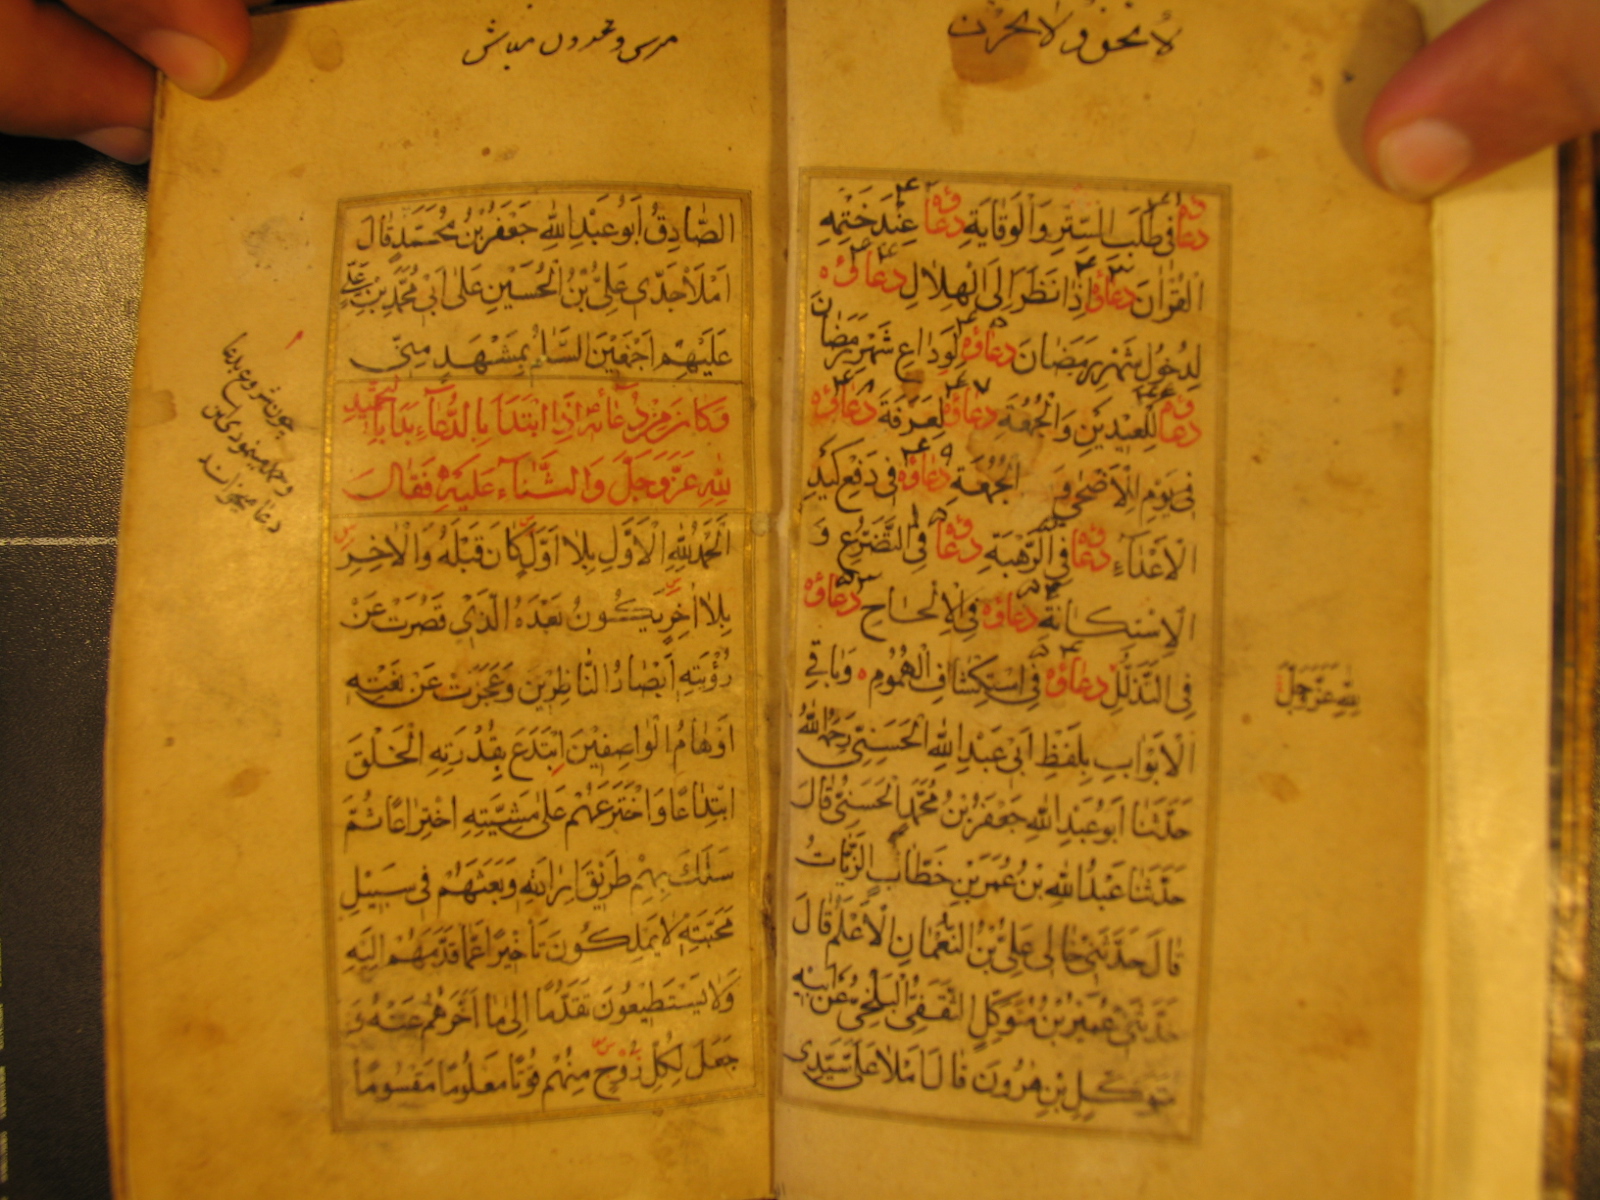 لا تخف ولا تحزن
دعاؤه في طلب الستر والوقاية دعاؤه عند ختمه
القرآن دعاؤه اذا نظر الى الهلال دعاؤه
لدخول شهر رمضان دعاؤه لوداع شهر رمضان
دعاؤه للعيدين والجمعة دعاؤه لعرفة دعاؤه
في يوم الاضحى و الجمعة دعاؤه في دفع كيد
الاعداء دعاؤه في الرهبة دعاؤه في التضرع و
الاستكانة دعاؤه في الالحاح دعاؤه
في التذلل دعاؤه في استكشاف الهموم وباقي
الابواب بلفظ ابي عبد الله الحسني رحمه الله
حدثنا ابو عبد الله جعفر بن محمد الحسني قال
حدثنا عبد الله بن عمر بن خطاب الزيات
قال حدثني خالي علي بن النعمان الاعلم قال
حدثني عمير بن متوكل الثقفي البلخي عن ابيه
متوكل بن هرون قال املا علي سيدي
لله عز وجل
مرسی و محزون مباش
الصادق ابو عبد الله جعفر بن محمد قال
املا جدي علي بن الحسين على ابي محمد بن علي
عليهم اجمعين السلام بمشهد مني
وكان من دعائه اذا ابتدا بالدعاء بدا بالتحميد
لله عز وجل والثناء عليه فقال
الحمد لله الاول بلا اول كان قبله والاخر
بلا اخر يكون بعده الذي قصرت عن
رؤيته ابصار الناظرين وعجزت عن نعته
اوهام الواصفين ابتدع بقدرته الخلق
ابتداعا واخترعهم على مشيته اختراعا ثم
سلك بهم طريق ارادته وبعثهم في سبيل
محبته لا يملكون تاخيرا عما قدمهم اليه
ولا يستطيعون تقدما الى ما اخرهم عنه و
جعل لكل روح منهم قوتا معلوما مقسوما
چون شروع بدعا